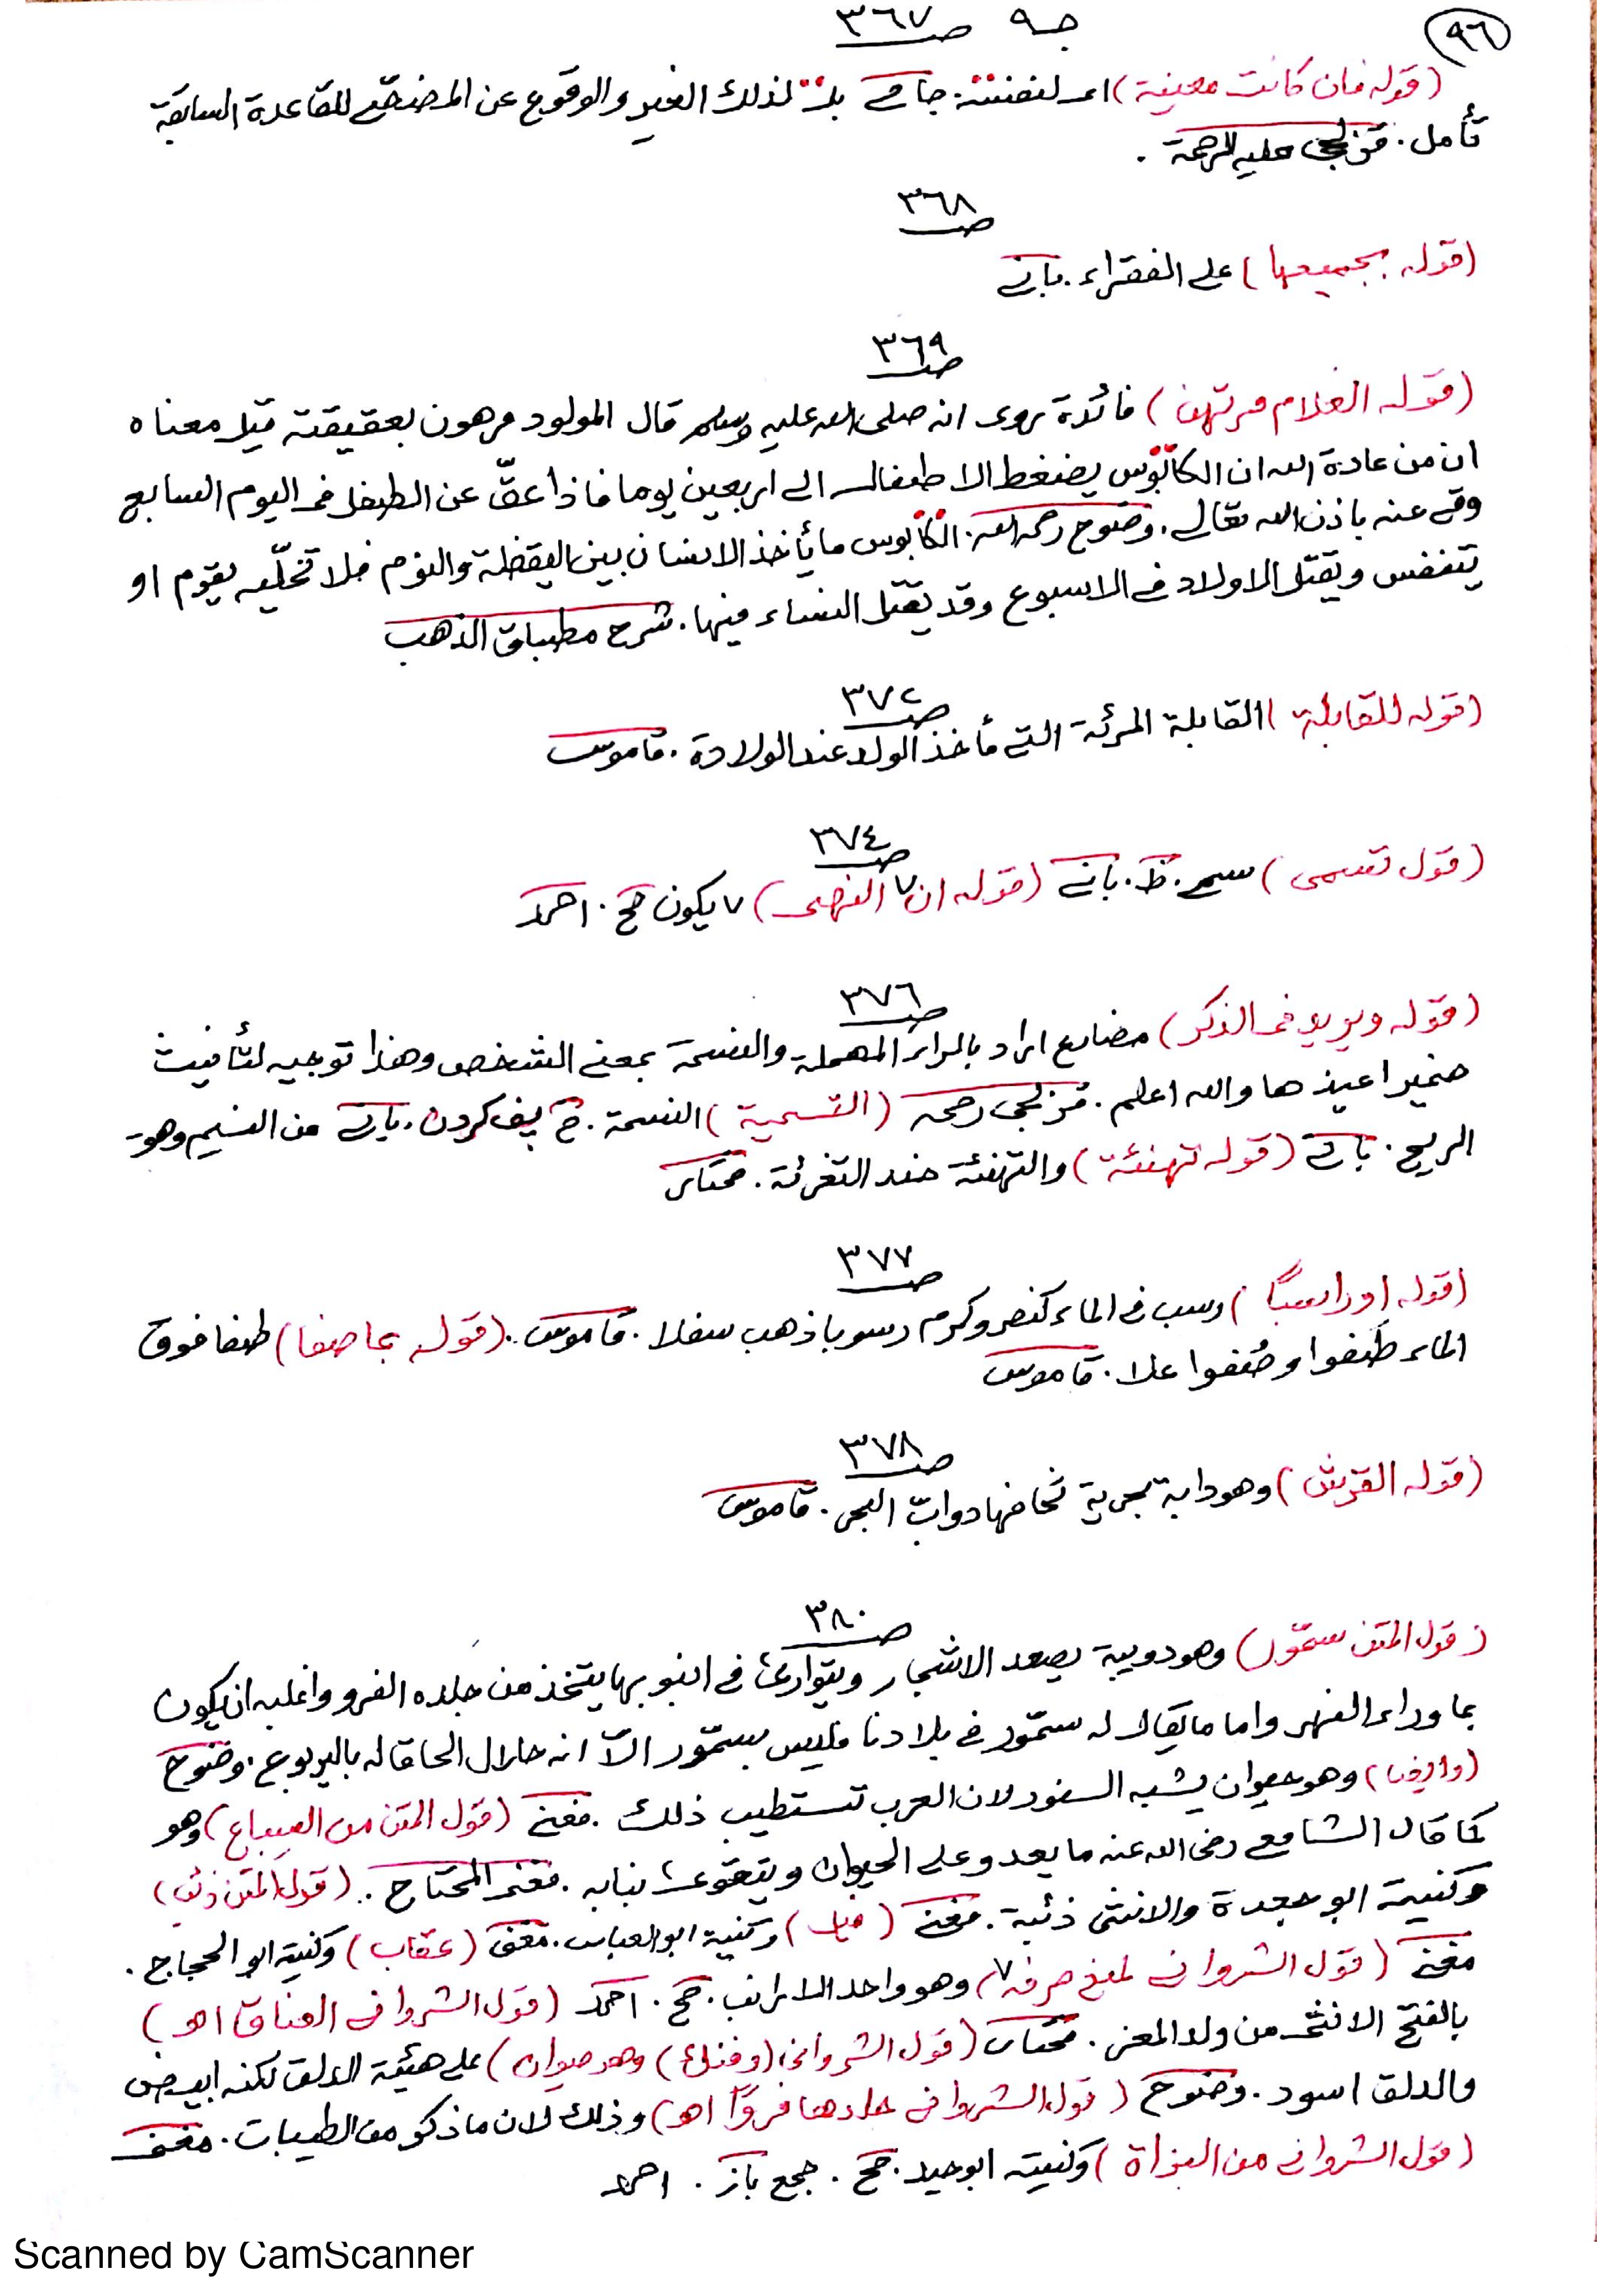 ٩٦
جـ ٩ صـ ٣٦٧
(قوله فان كانت معينة) اى لنفسه جاز لذلك الغير والوقوع عن المضحى للقاعدة السابقة
تأمل. قزلجى عليه الرحمة.
صـ ٣٦٨
(قوله بجميعها) على الفقراء. بانى
صـ ٣٦٩
(قوله الغلام مرتهن) فائدة روى انه صلى الله عليه وسلم قال المولود مرهون بعقيقته قيل معناه
ان من عادة الله ان الكابوس يضغط الاطفال الى اربعين يوما فاذا عقّ عن الطفل فى اليوم السابع
وقى عنه باذن الله تعالى. وضوح رحمه الله. الكابوس ما يأخذ الانسان بين اليقظة والنوم فلا تخلّيه يقوم او
يتنفس ويقتل الاولاد فى الاسبوع وقد يقتل النساء فيها. شرح مطباق الذهب
صـ ٣٧٢
(قوله للقابلة) القابلة المرئة التى تأخذ الولد عند الولادة. قاموس
صـ ٣٧٤
(قول تسمى) سمى. ظ. بانى (قوله ان لا النهى) لا يكون صح. احمد
صـ ٣٧٦
(قوله ويريد فى الذكر) مضارع اراد بالراء المهملة والنسمة بمعنى الشخص وهذا توجيه لتأنيث
ضمير اعيذها والله اعلم. قزلجى رحمه (التسمية) النسمة. خ پف كردن. بانى من النسيم وهو
الريح. بانى (قوله تهنئة) والتهنئة ضد التعزية. مختار
صـ ٣٧٧
(قوله او راسبًا) رسب فى الماء كنصر وكرم رسوبا ذهب سفلا. قاموس. (قوله بما صفا) طفا فوق
الماء طَفوا وطُفوا علا. قاموس
صـ ٣٧٨
(قوله القرش) وهو دابة بحرية تخافها دوابّ البحر. قاموس
صـ ٣٨٠
(قول المتن سمّور) وهو دويبة يصعد الاشجار ويتوارى فى يتخذ من جلده الفرو واغلبه ان يكون
بما وراء النهر واما ما يقال له سمّور فى بلادنا فليس بسمّور الّا انه حلال الحاقا له باليربوع. وضوح
وهو حيوان يشبه السنور لان العرب تستطيب ذلك. مغنى (قول المتن من السباع) وهو
كما قال الشافعى رضى الله عنه ما يعدو على الحيوان ويتقوى بنابه. مغنى المحتاج. (قول المتن ذئب)
وكنيته ابو جعدة والانثى ذئبة. مغنى (فيل) وكنيته ابو العباس. مغنى (عقاب) وكنيته ابو الحجاج.
مغنى (قول الشروانى وهو واحد الارانب. صح. احمد (قول الشروانى العناق اهـ)
بالفتح الانثى من ولد المعز. مختار (قول الشروانى (وفنك) وهو حيوان) على هيئة الدلق لكنه ابيض
والدلق اسود. وضوح (قول الشروانى جلدها فروًا اهـ) وذلك لان ما ذكر من الطيبات. مغنى
(قول الشروانى من البزاة) وكنيته ابو صح. جمع باز. احمد
Scanned by CamScanner